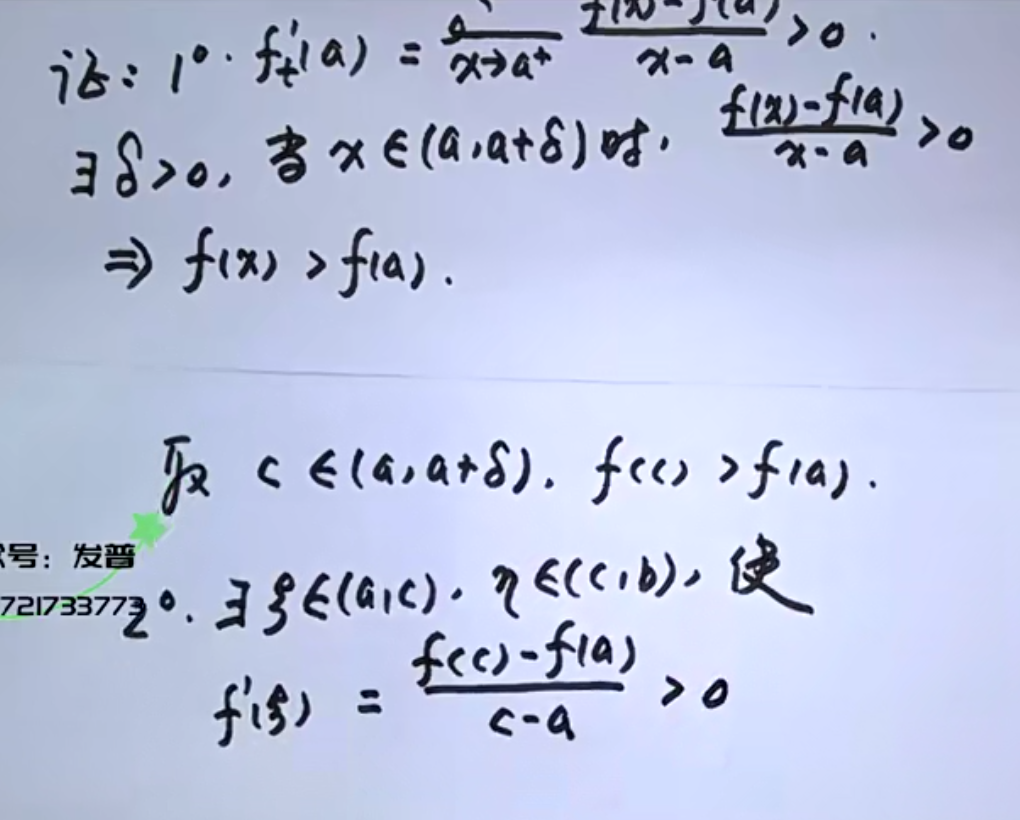 证: 1°. f'₊(a) = lim x→a⁺ (f(x)-f(a))/(x-a) > 0.
∃δ>0, 当 x∈(a,a+δ)时, (f(x)-f(a))/(x-a) > 0
⇒ f(x) > f(a).
取 c∈(a,a+δ), f(c) > f(a).
号: 发普
721733773
2°. ∃ξ∈(a,c), η∈(c,b), 使
f'(ξ) = (f(c)-f(a))/(c-a) > 0